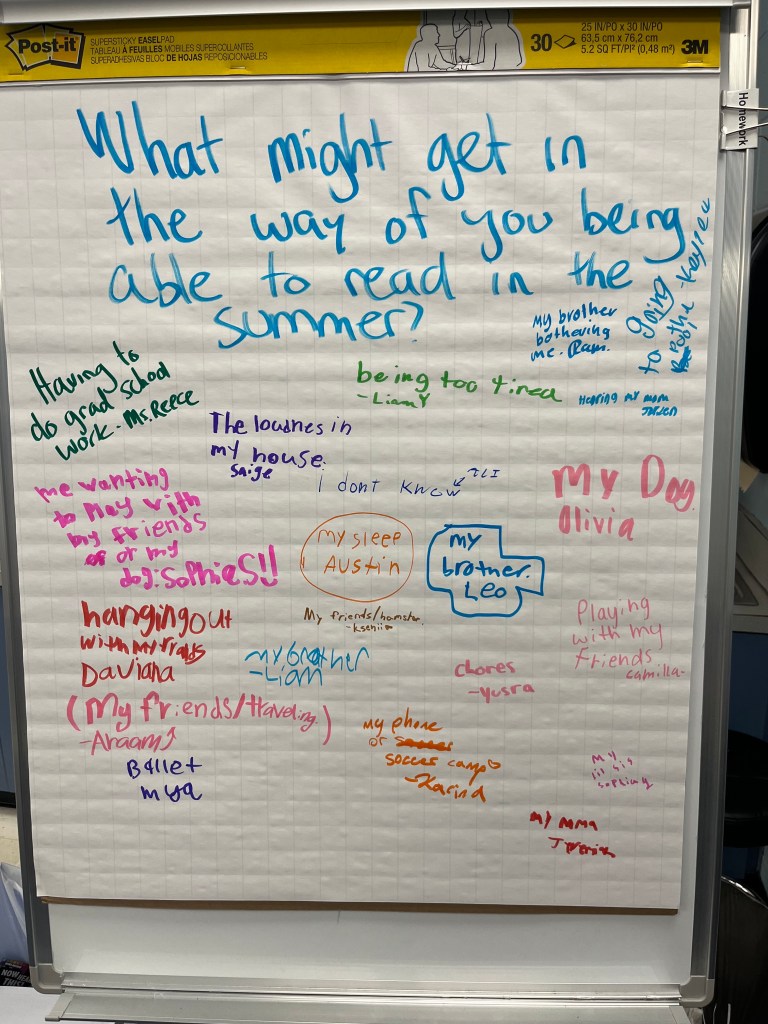 Post-it
SUPERSTICKY EASELPAD
TABLEAU À FEUILLES MOBILES SUPERCOLLANTES
SUPERADHESIVAS BLOC DE HOJAS REPOSICIONABLES
30
25 IN/PO x 30 IN/PO
63,5 cm x 76,2 cm
5.2 SQ FT/PI² (0,48 m²)
3M
Homework
What might get in
the way of you being
able to read in the
summer?
My brother
bothering
me. Ram.
going
to the
Having to
do grad school
work - Ms. Reece
being too tired
- Liam Y
my mom
The loudnes in
my house.
Saige
i dont know
me wanting
to play with
my friends
or my
dog. SOPHIES!!
my sleep
AUSTIN
my
brother.
Leo
my Dog.
Olivia
hanging out
with my
Daviana
My friends/hamster.
- Kseniia
my brother
- Liam
Chores
- Yusra
Playing
with my
friends
camilla-
(My friends/traveling)
- Araam
my phone
or soccer
soccer camp
- Karina
Ballet
mya
my
lil sis
my mma